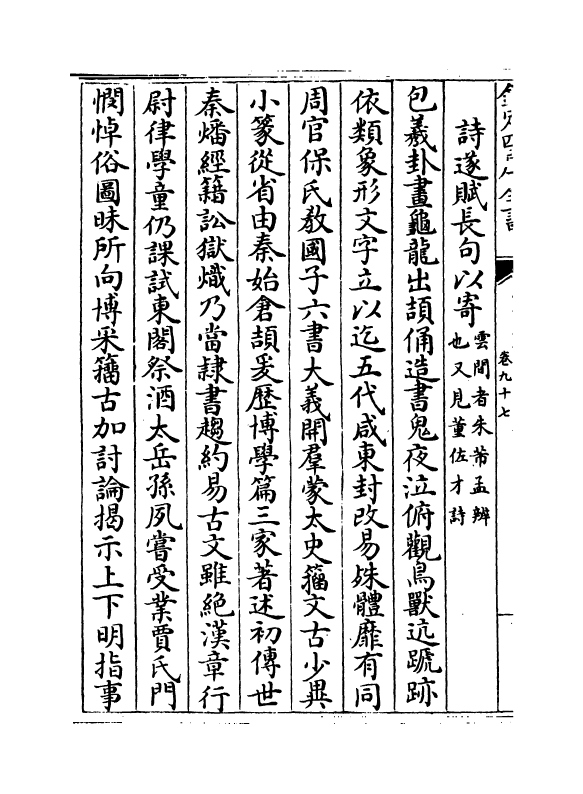 詩遂賦長句以寄雲間者朱芾孟辨也又見董佐才詩
包羲卦畫龜龍出頡俑造書鬼夜泣俯觀鳥獸迒蹏跡
依類象形文字立以迄五代咸東封改易殊體靡有同
周官保氏敎國子六書大義開羣蒙太史籒文古少異
小篆從省由秦始倉頡爰歷博學篇三家著述初傳世
秦燔經籍訟獄熾乃當隸書趨約易古文雖絶漢章行
尉律學童仍課試東閣祭酒太岳孫夙嘗受業賈氏門
憫悼俗圖昧所向博采籒古加討論揭示上下明指事
卷九十七